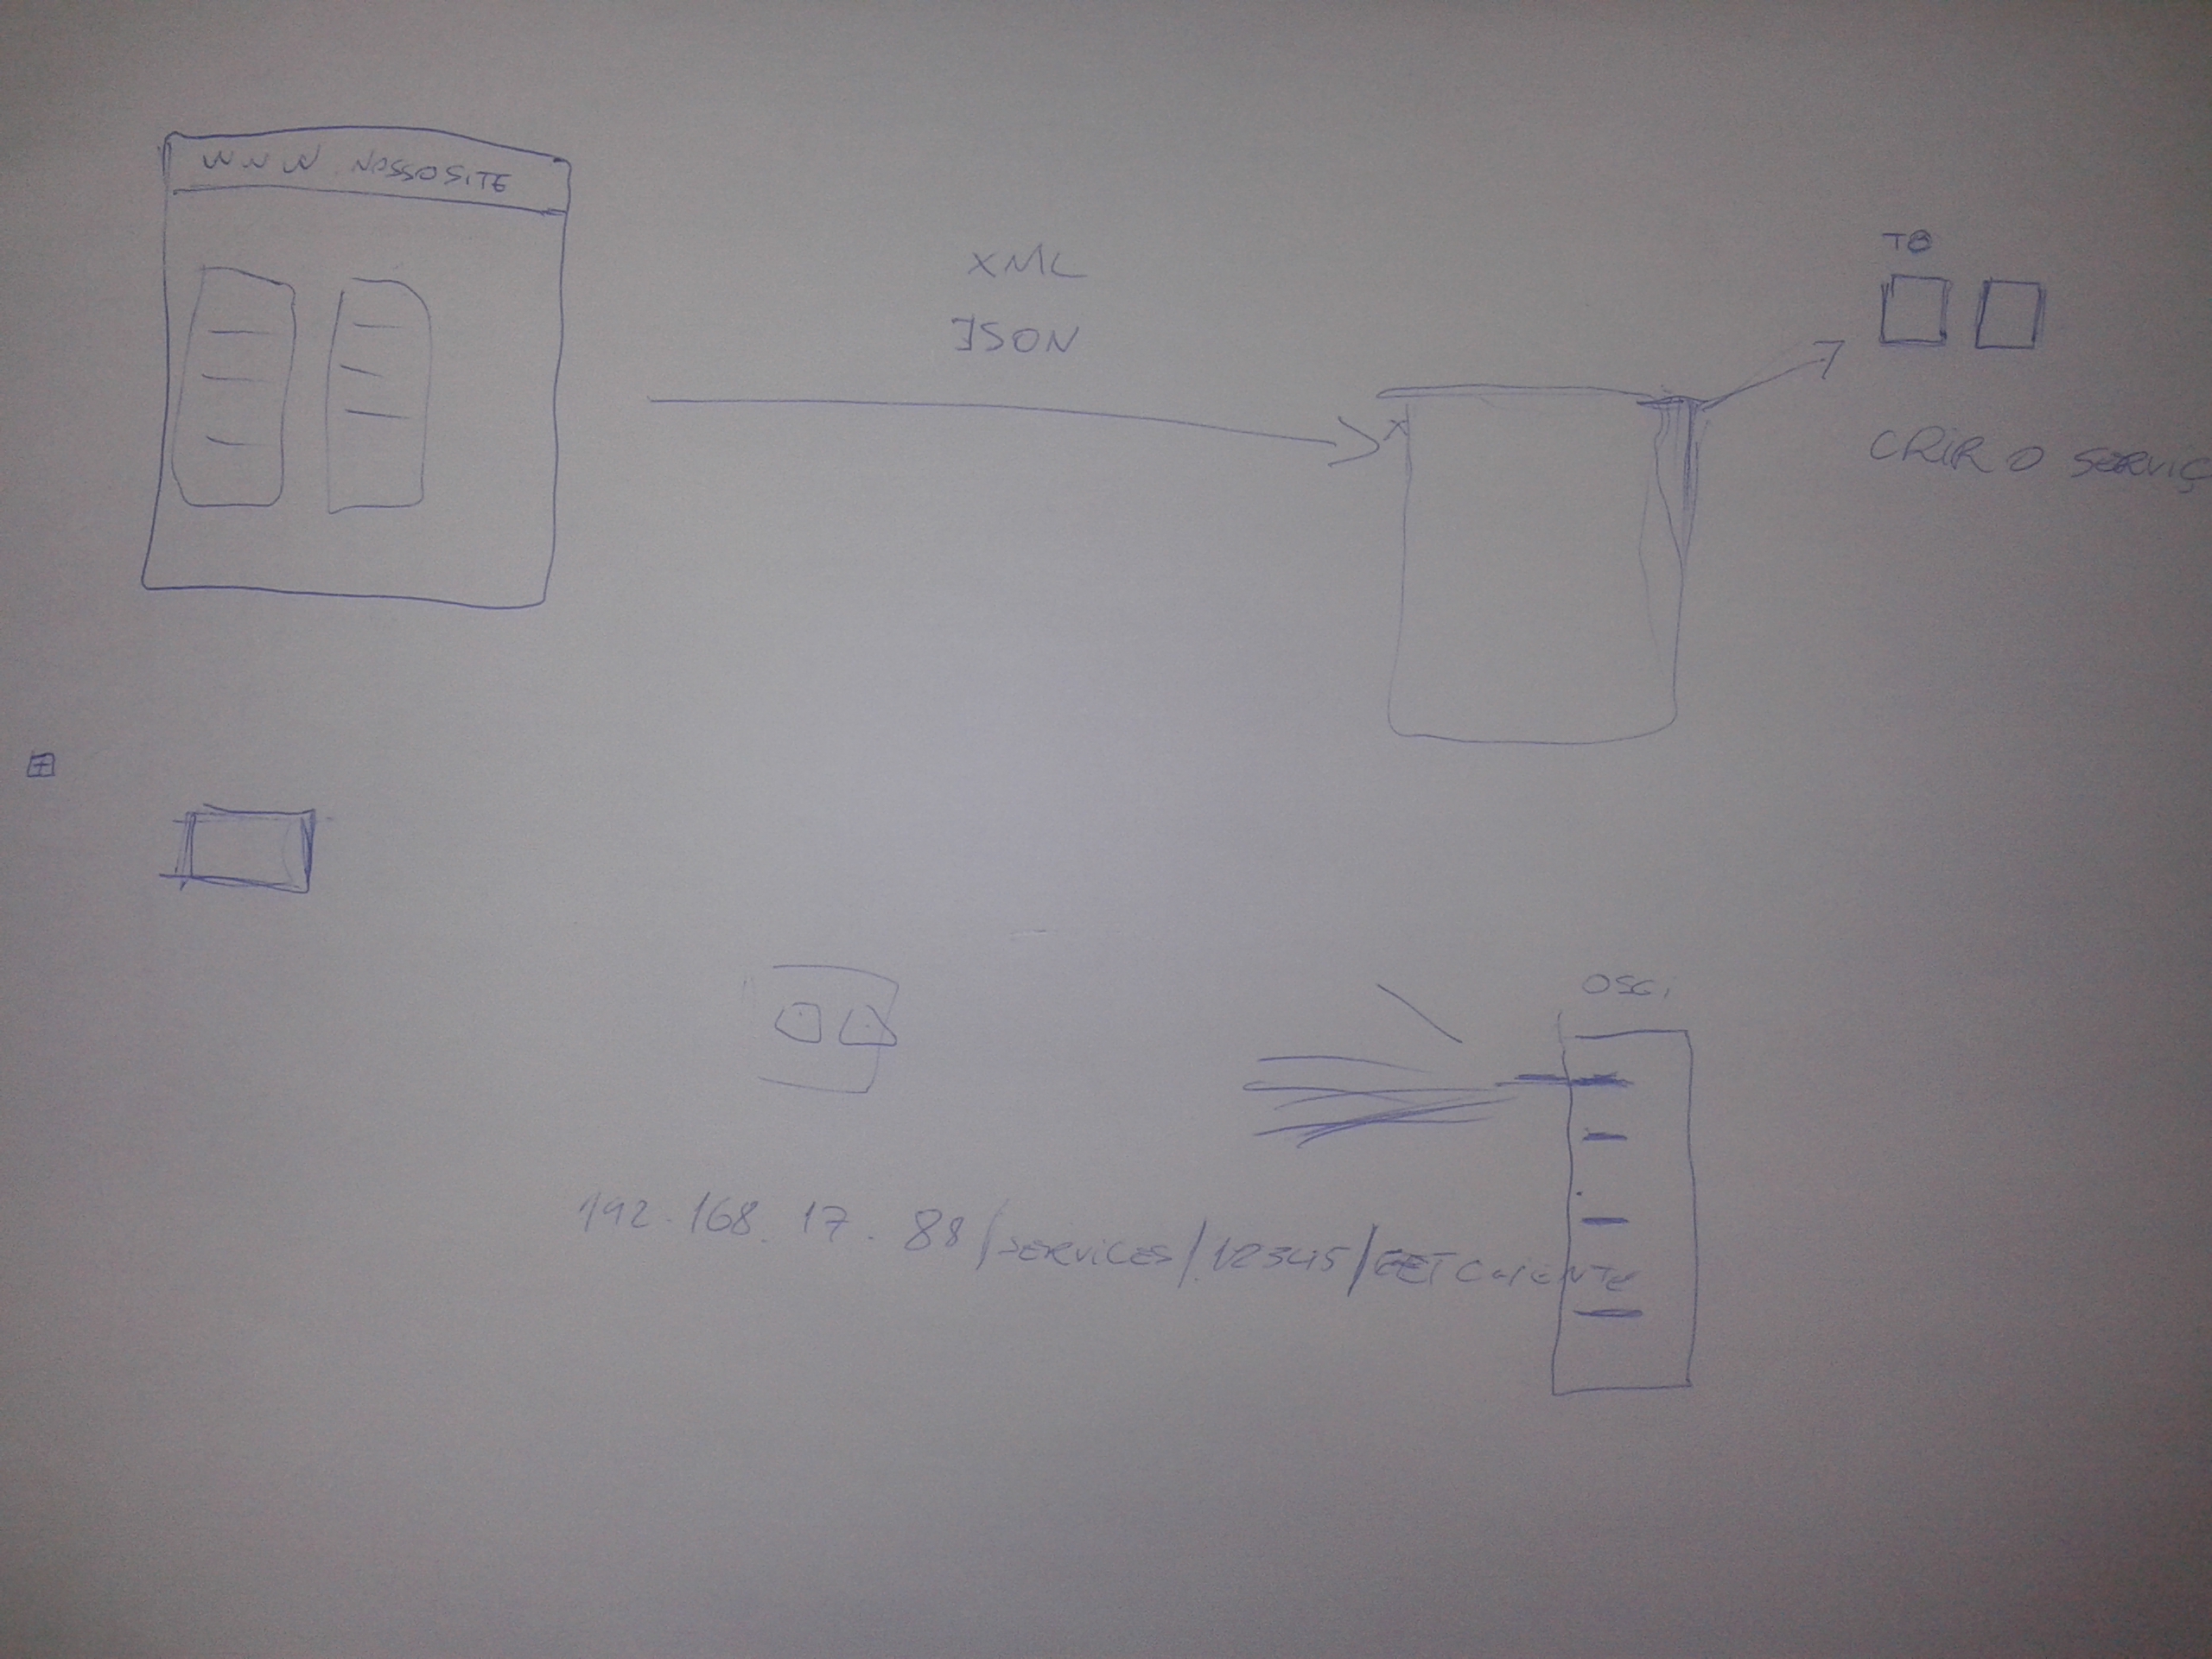 WWW. NOSSOSITE
XML
JSON
TB
CRIR O SERVIÇ
OSGi
192.168.17.88/SERVICES/12345/GETCLIENTE